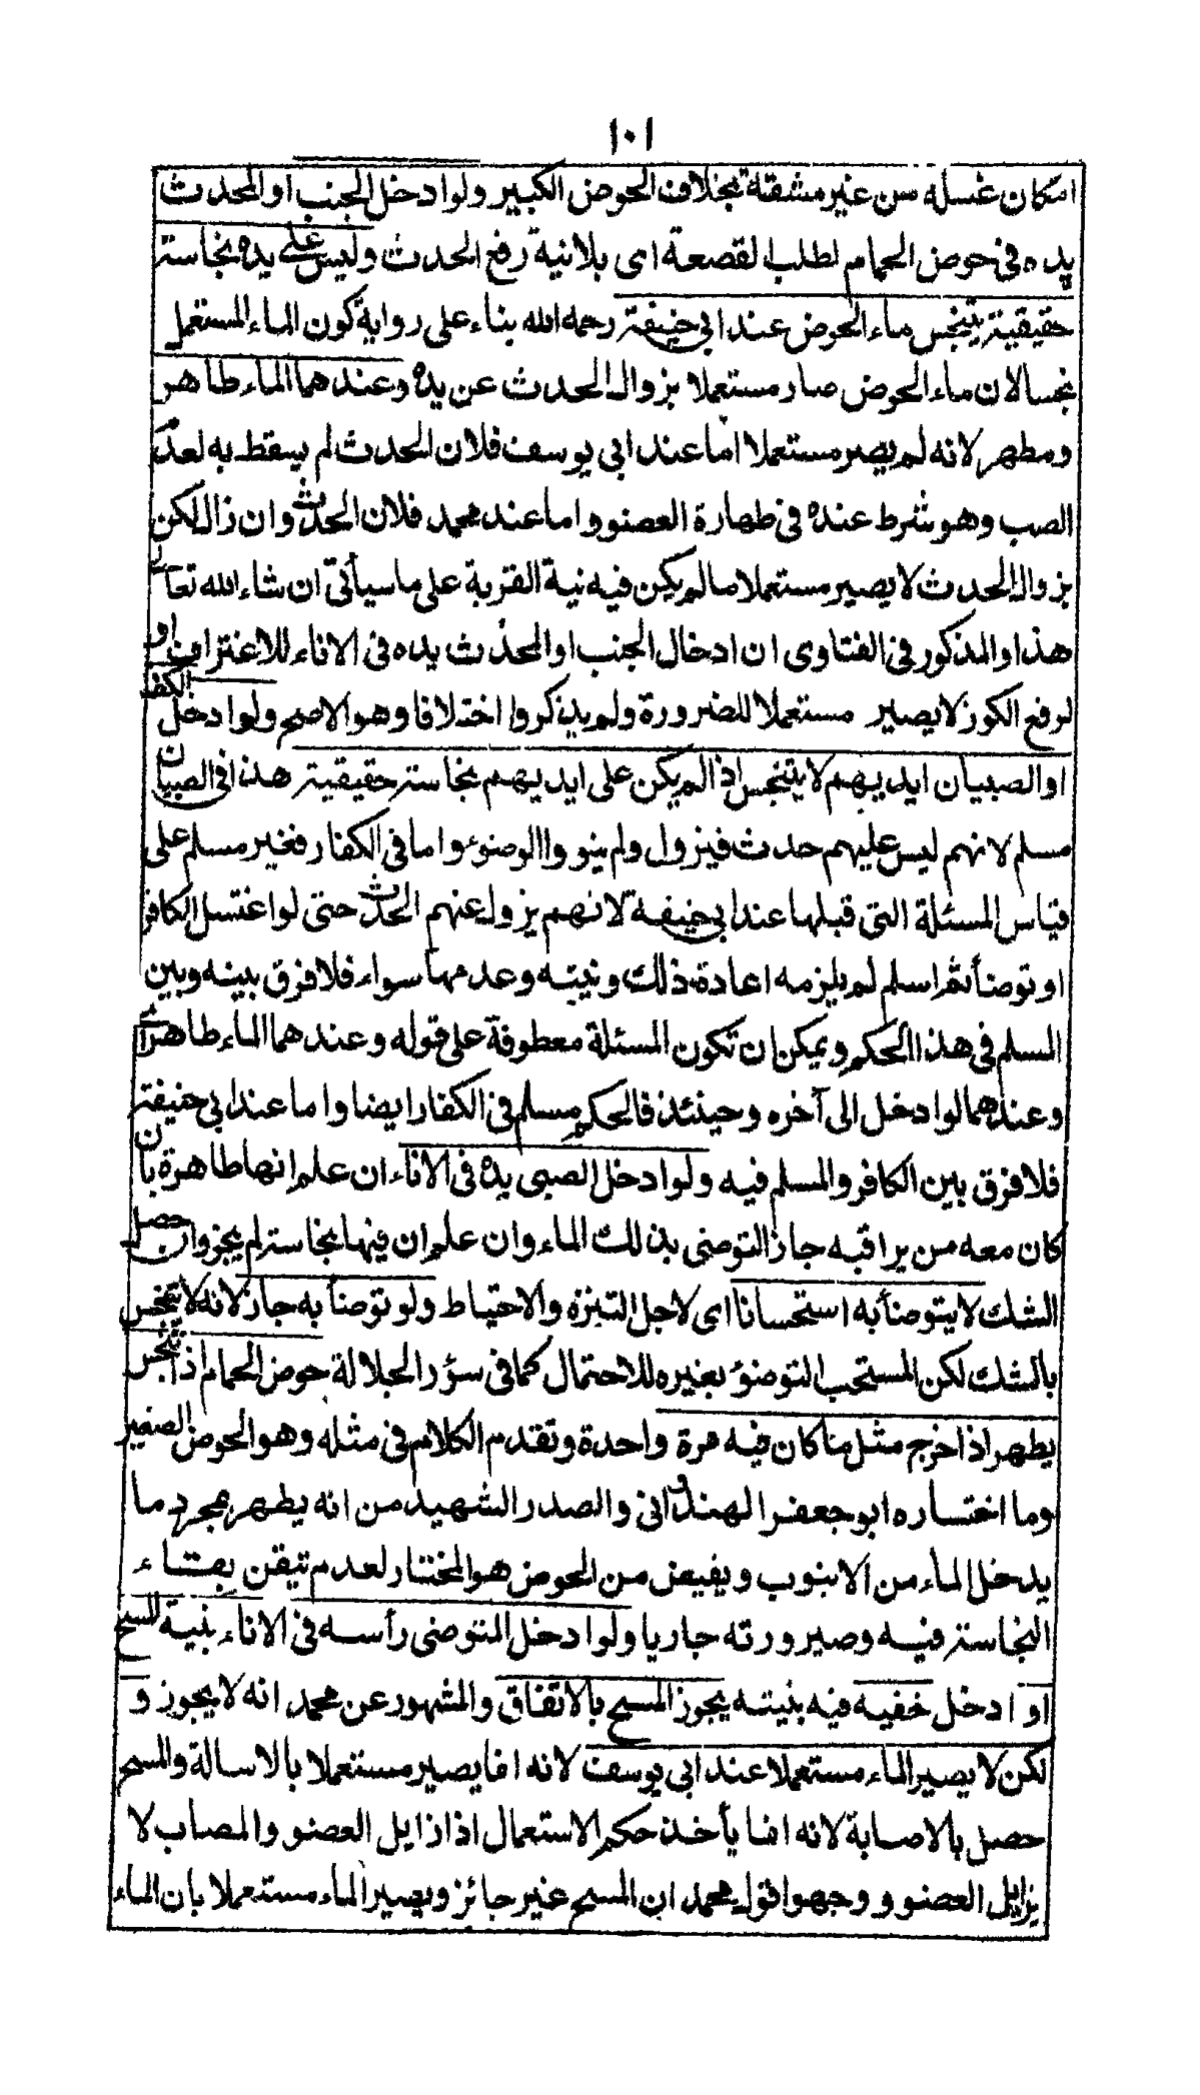 ١٠١
امكان غسله من غير مشقة بخلاف الحوض الكبير ولو ادخل الجنب او المحدث
يده فى حوض الحمام لطلب القصعة اى بلا نية رفع الحدث وليس على يده نجاسة
حقيقية يتنجس ماء الحوض عند ابى حنيفة رحمه الله بناء على رواية كون الماء المستعمل
نجسا لان ماء الحوض صار مستعملا بزوال الحدث عن يده وعندهما الماء طاهر
ومطهر لانه لم يصر مستعملا اما عند ابى يوسف فلان الحدث لم يسقط به لعدم
الصب وهو شرط عنده فى طهارة العضو واما عند محمد فلان الحدث وان زال لكن
بزوال الحدث لا يصير مستعملا ما لم يكن فيه نية القربة على ما سيأتى ان شاء الله تعالى
هذا والمذكور فى الفتاوى ان ادخال الجنب او المحدث يده فى الاناء للاغتراف او
لرفع الكوز لا يصير مستعملا للضرورة ولم يذكروا اختلافا وهو الاصح ولو ادخل الكفار
او الصبيان ايديهم لا يتنجس اذا لم يكن على ايديهم نجاسة حقيقية هذا فى الصبيان
مسلم لانهم ليس عليهم حدث فيزول ولم ينووا الوضوء واما فى الكفار فغير مسلم على
قياس المسئلة التى قبلها عند ابى حنيفة لانهم يزول عنهم الحدث حتى لو اغتسل الكافر
او توضأ ثم اسلم لم يلزمه اعادة ذلك ونيته وعدمها سواء فلا فرق بينه وبين
المسلم فى هذا الحكم ويمكن ان تكون المسئلة معطوفة على قوله وعندهما الماء طاهر اى
وعندهما لو ادخل الى آخره وحينئذ فالحكم مسلم فى الكفار ايضا واما عند ابى حنيفة
فلا فرق بين الكافر والمسلم فيه ولو ادخل الصبى يده فى الاناء ان علم انها طاهرة بان
كان معه من يراقبه جاز التوضى بذلك الماء وان علم ان فيها نجاسة لم يجز وان حصل
الشك لا يتوضأ به استحسانا اى لاجل التنزه والاحتياط ولو توضأ به جاز لانه لا يتنجس
بالشك لكن المستحب التوضؤ بغيره للاحتمال كما فى سؤر الجلالة حوض الحمام اذا تنجس
يطهر اذا خرج مثل ما كان فيه مرة واحدة وتقدم الكلام فى مثله وهو الحوض الصغير
وما اختاره ابو جعفر الهندوانى والصدر الشهيد من انه يطهر بمجرد ما
يدخل الماء من الانبوب ويفيض من الحوض هو المختار لعدم تيقن بقاء
النجاسة فيه وصيرورته جاريا ولو ادخل المتوضى رأسه فى الاناء بنية المسح
او ادخل خفيه فيه بنيته يجوز المسح بالاتفاق والمشهور عن محمد انه لا يجوز و
لكن لا يصير الماء مستعملا عند ابى يوسف لانه انما يصير مستعملا بالاسالة والمسح
حصل بالاصابة لانه انما يأخذ حكم الاستعمال اذا زايل العضو والمصاب لا
يزايل العضو و وجهوا قول محمد ان المسح غير جائز ويصير الماء مستعملا بان الماء